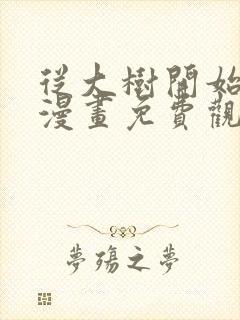 從大樹開始
漫畫免費觀
夢殤之夢